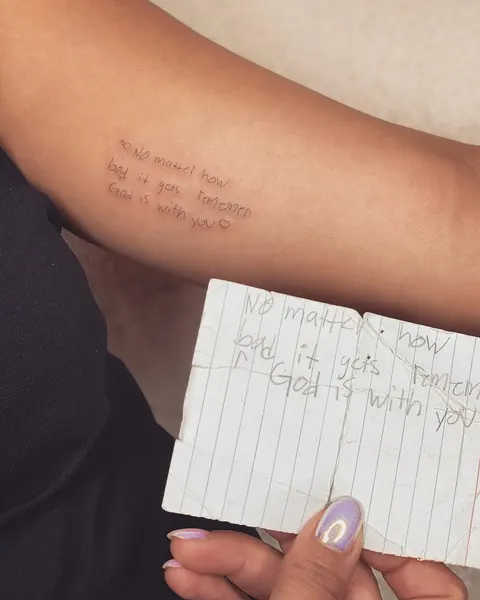 ♡ No matter how
bad it gets remember
God is with you ♡
No matter how
bad it gets remem
God is with you